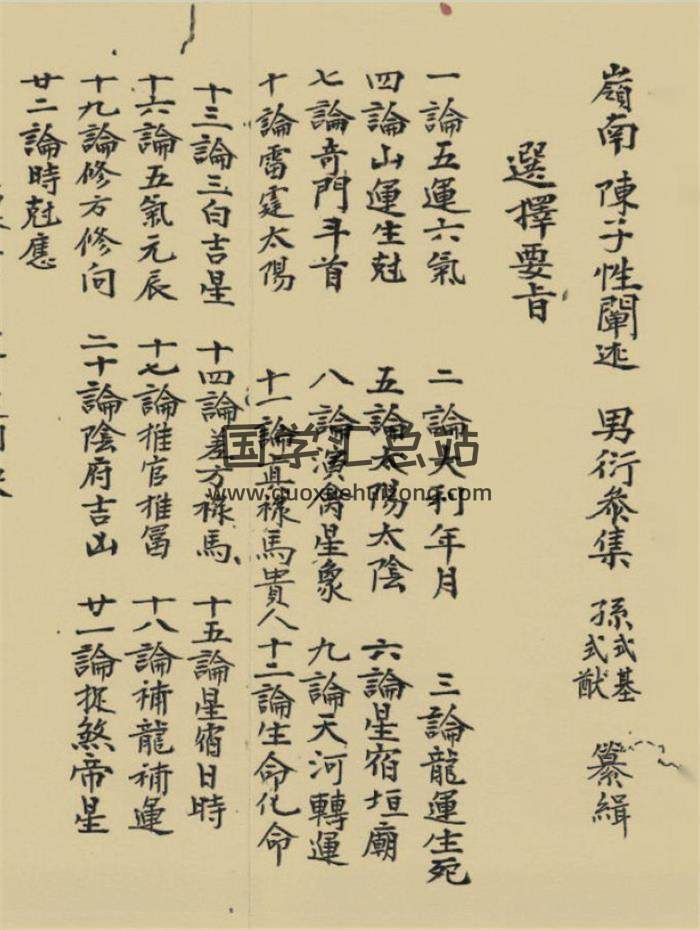 嶺南 陳子性闡述 男衍叅集 孫式基式猷 纂緝
選擇要旨
一論五運六氣 二論大利年月 三論龍運生死
四論山運生尅 五論太陽太陰 六論星宿垣廟
七論奇門斗首 八論演禽星象 九論天河轉運
十論雷霆太陽 十一論真祿馬貴人 十二論生命化命
十三論三白吉星 十四論差方祿馬 十五論星宿日時
十六論五氣元辰 十七論推官推冨 十八論補龍補運
十九論修方修向 二十論陰府吉山 廿一論捉煞帝星
廿二論時尅應
国学汇总站
www.guoxuehuizong.com